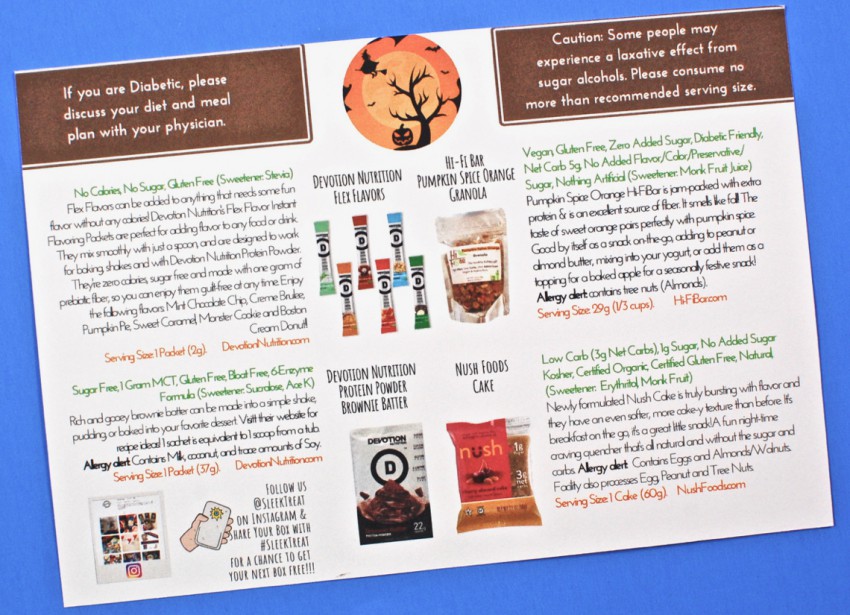 If you are Diabetic, please
discuss your diet and meal
plan with your physician.
Caution: Some people may
experience a laxative effect from
sugar alcohols. Please consume no
more than recommended serving size.
No Calories, No Sugar, Gluten Free (Sweetener: Stevia)
Flex Flavors can be added to anything that needs some fun
flavor without any calories! Devotion Nutrition's Flex Flavor Instant
Flavoring Packets are perfect for adding flavor to any food or drink.
They mix smoothly with just a spoon, and are designed to work
for baking, shakes and with Devotion Nutrition Protein Powder.
They're zero calories, sugar free and made with one gram of
prebiotic fiber, so you can enjoy them guilt-free at any time. Enjoy
the following flavors: Mint Chocolate Chip, Creme Brulee,
Pumpkin Pie, Sweet Caramel, Monster Cookie and Boston
Cream Donut!!
Serving Size: 1 Packet (2g). DevotionNutrition.com
DEVOTION NUTRITION
FLEX FLAVORS
HI-FI BAR
PUMPKIN SPICE ORANGE
GRANOLA
Vegan, Gluten Free, Zero Added Sugar, Diabetic Friendly,
Net Carb 5g, No Added Flavor/Color/Preservative/
Sugar, Nothing Artificial (Sweetener: Monk Fruit Juice)
Pumpkin Spice Orange Hi-Fi Bar is jam-packed with extra
protein & is an excellent source of fiber. It smells like fall! The
taste of sweet orange pairs perfectly with pumpkin spice.
Good by itself as a snack on-the-go, adding to peanut or
almond butter, mixing into your yogurt, or add them as a
topping for a baked apple for a seasonally festive snack!
Allergy alert: contains tree nuts (Almonds).
Serving Size: 29g (1/3 cups). Hi-FiBar.com
Sugar Free, 1 Gram MCT, Gluten Free, Bloat Free, 6-Enzyme
Formula (Sweetener: Sucralose, Ace K)
Rich and gooey brownie batter can be made into a simple shake,
pudding or baked into your favorite dessert. Visit their website for
recipe ideas! 1 sachet is equivalent to 1 scoop from a tub.
Allergy alert: Contains Milk, coconut, and trace amounts of Soy.
Serving Size: 1 Packet (37g). DevotionNutrition.com
DEVOTION NUTRITION
PROTEIN POWDER
BROWNIE BATTER
DEVOTION
NUTRITION
D
22
NUSH FOODS
CAKE
nush
1g
3g
net
Low Carb (3g Net Carbs), 1g Sugar, No Added Sugar
Kosher, Certified Organic, Certified Gluten Free, Natural
(Sweetener: Erythritol, Monk Fruit)
Newly formulated Nush Cake is truly bursting with flavor and
they have an even softer, more cake-y texture than before. It's
breakfast on the go, it's a great little snack! A fun night-time
craving quencher that's all natural and without the sugar and
carbs. Allergy alert: Contains Eggs and Almonds/Walnuts.
Facility also processes Egg, Peanut and Tree Nuts.
Serving Size: 1 Cake (60g). NushFoods.com
FOLLOW US
@SLEEKTREAT
ON INSTAGRAM &
SHARE YOUR BOX WITH
#SLEEKTREAT
FOR A CHANCE TO GET
YOUR NEXT BOX FREE!!!